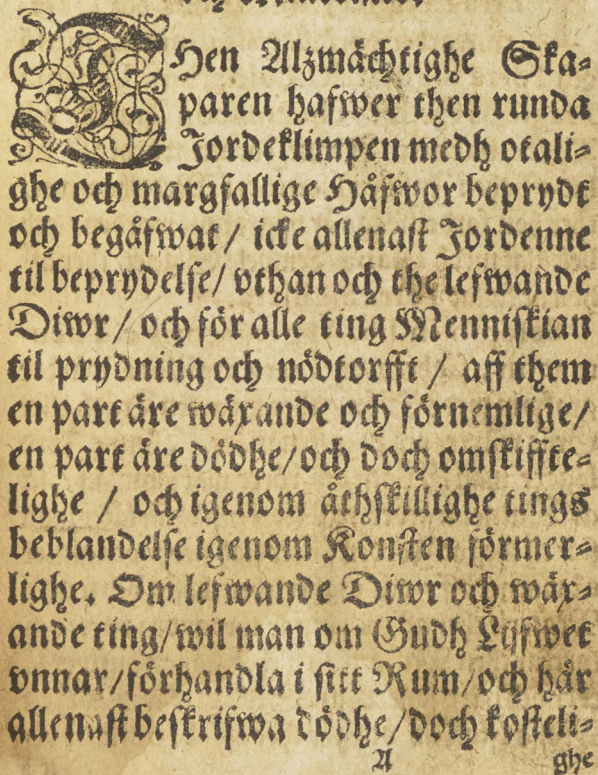 THen Alzmächtighe Ska-
paren hafwer then runda
Jordeklimpen medh otali-
ghe och margfallige Håfwor beprydt
och begåfwat / icke allenast Jordenne
til beprydelse / vthan och the lefwande
Diwr / och för alle ting Menniskian
til prydning och nödtorfft / aff them
en part äre wäxande och förnemlige /
en part äre dödhe / och doch omskiffte-
lighe / och igenom åthskillighe tings
beblandelse igenom Konsten förmer-
lighe. Om lefwande Diwr och wäx-
ande ting / wil man om Gudh Lijfwet
vnnar / förhandla i sitt Rum / och här
allenast beskrifwa dödhe / doch kosteli-
A ghe